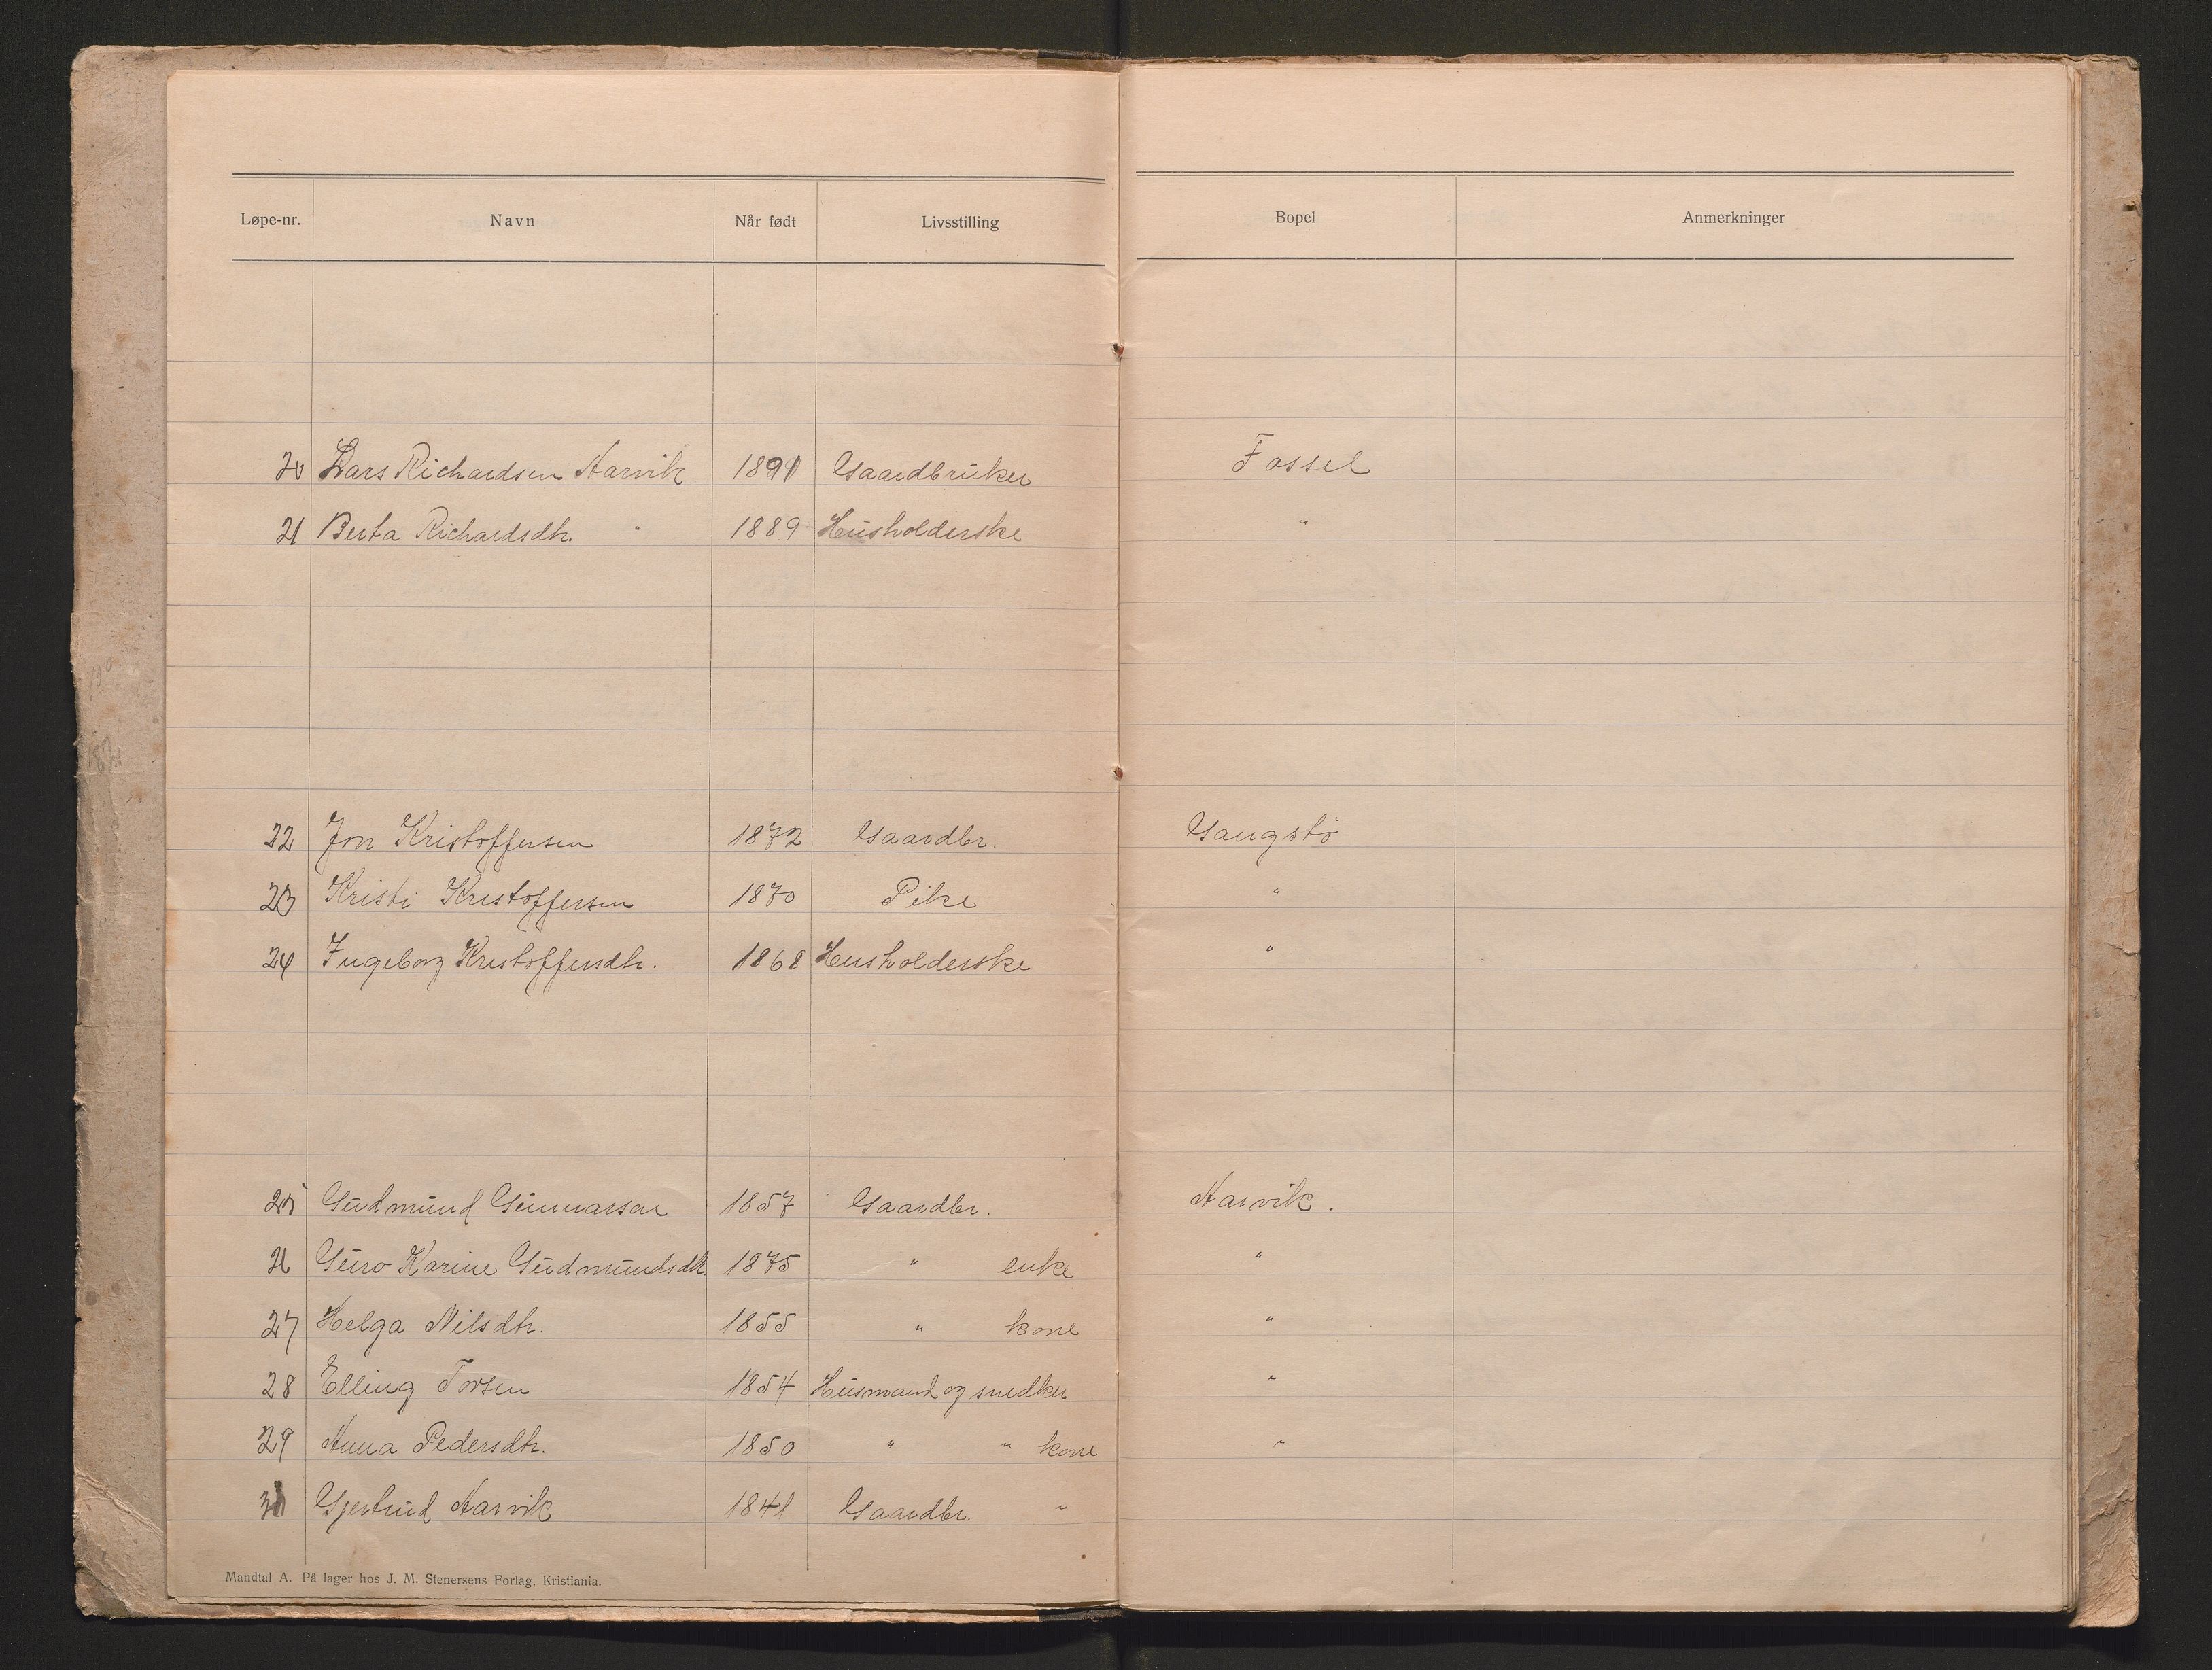 Løpe-nr. Navn Når født Livsstilling Bopel Anmerkninger
20 Lars Richardsen Narvik 1891 Gaardbruker Fossel
21 Berta Richardsdtr. " 1889 Husholderske "
22 Jon Kristoffersen 1872 Gaardbr. Gaugstö
23 Kristi Kristoffersen 1870 Pike "
24 Ingeborg Kristoffersdtr. 1868 Husholderske "
25 Gudmund Gunnarson 1857 Gaardbr. Narvik.
26 Guro Karine Gudmundsdtr 1875 " enke "
27 Helga Nilsdtr. 1855 " kone "
28 Elling Torsen 1854 Husmand og snedker "
29 Anna Pedersdtr. 1850 " " kone "
Gjertrud Narvik 1841 Gaardbr. "
Mandtal A. På lager hos J. M. Stenersens Forlag, Kristiania.